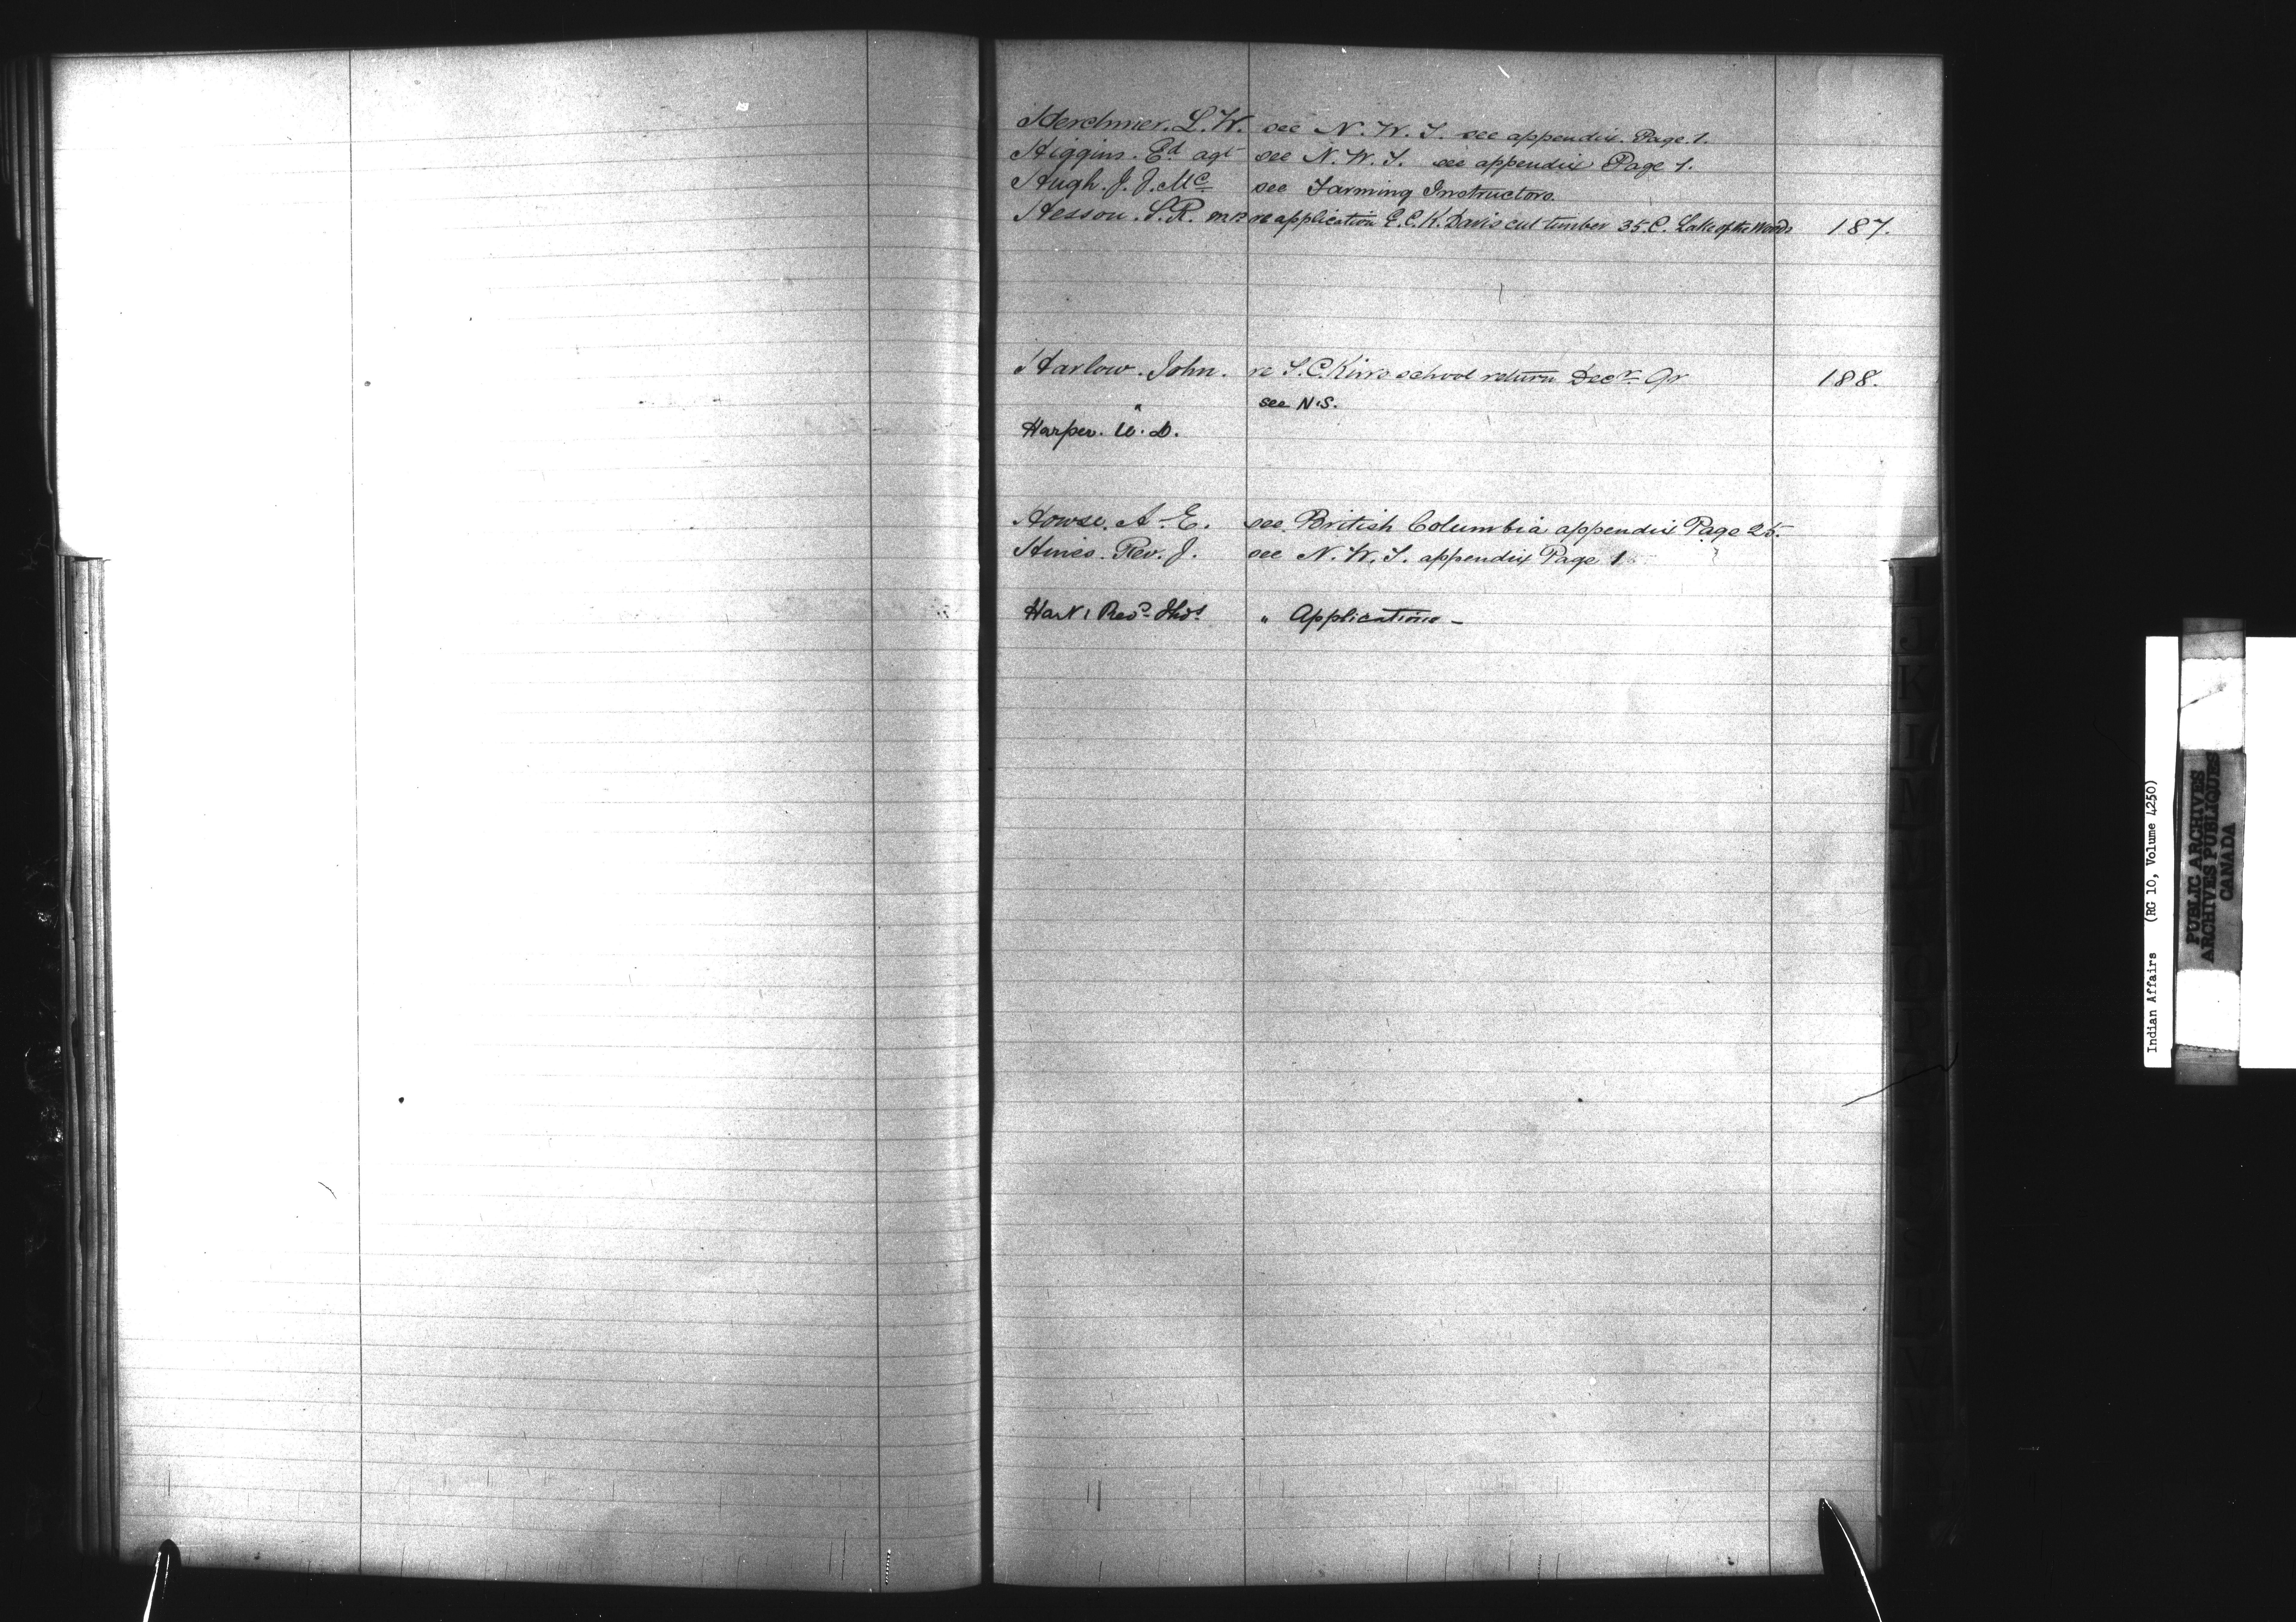 Herchmer. L. W. see N. W. T. see appendix. Page 1.
Higgins. Ed agt see N. W. T. see appendix Page 1.
Hugh. J. J. Mc see Farming Instructors.
Hesson. S. R. M.P. re application E. C. K. Davis cut timber 35. C. Lake of the Woods 187.
Harlow. John. re S. C. school return Decr Qr 188.
see N.S.
Harper. D.
Howse. A. E. see British Columbia appendix Page 25.
Hines. Rev. J. see N. W. T. appendix Page 1
Hart, Revd Thos. " Applications -
I
J
K
Indian Affairs (RG 10, Volume 4250)
PUBLIC ARCHIVES
ARCHIVES PUBLIQUES
CANADA